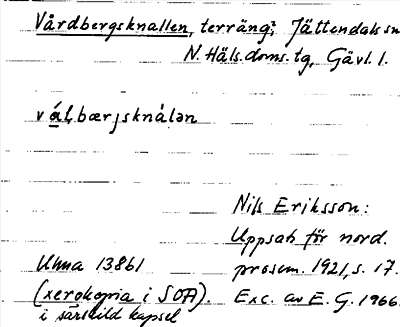 Vårdbergsknallen, terräng?, Jättendals sn
N. Häls. doms. tg, Gävl. l.
vál,bærjsknàlən
Nils Eriksson:
Uppsats för nord.
prosem. 1921, s. 17.
Exc. av E. G. 1966.
Uuma 13861
(xerokopia i SOA).
i särskild kapsel